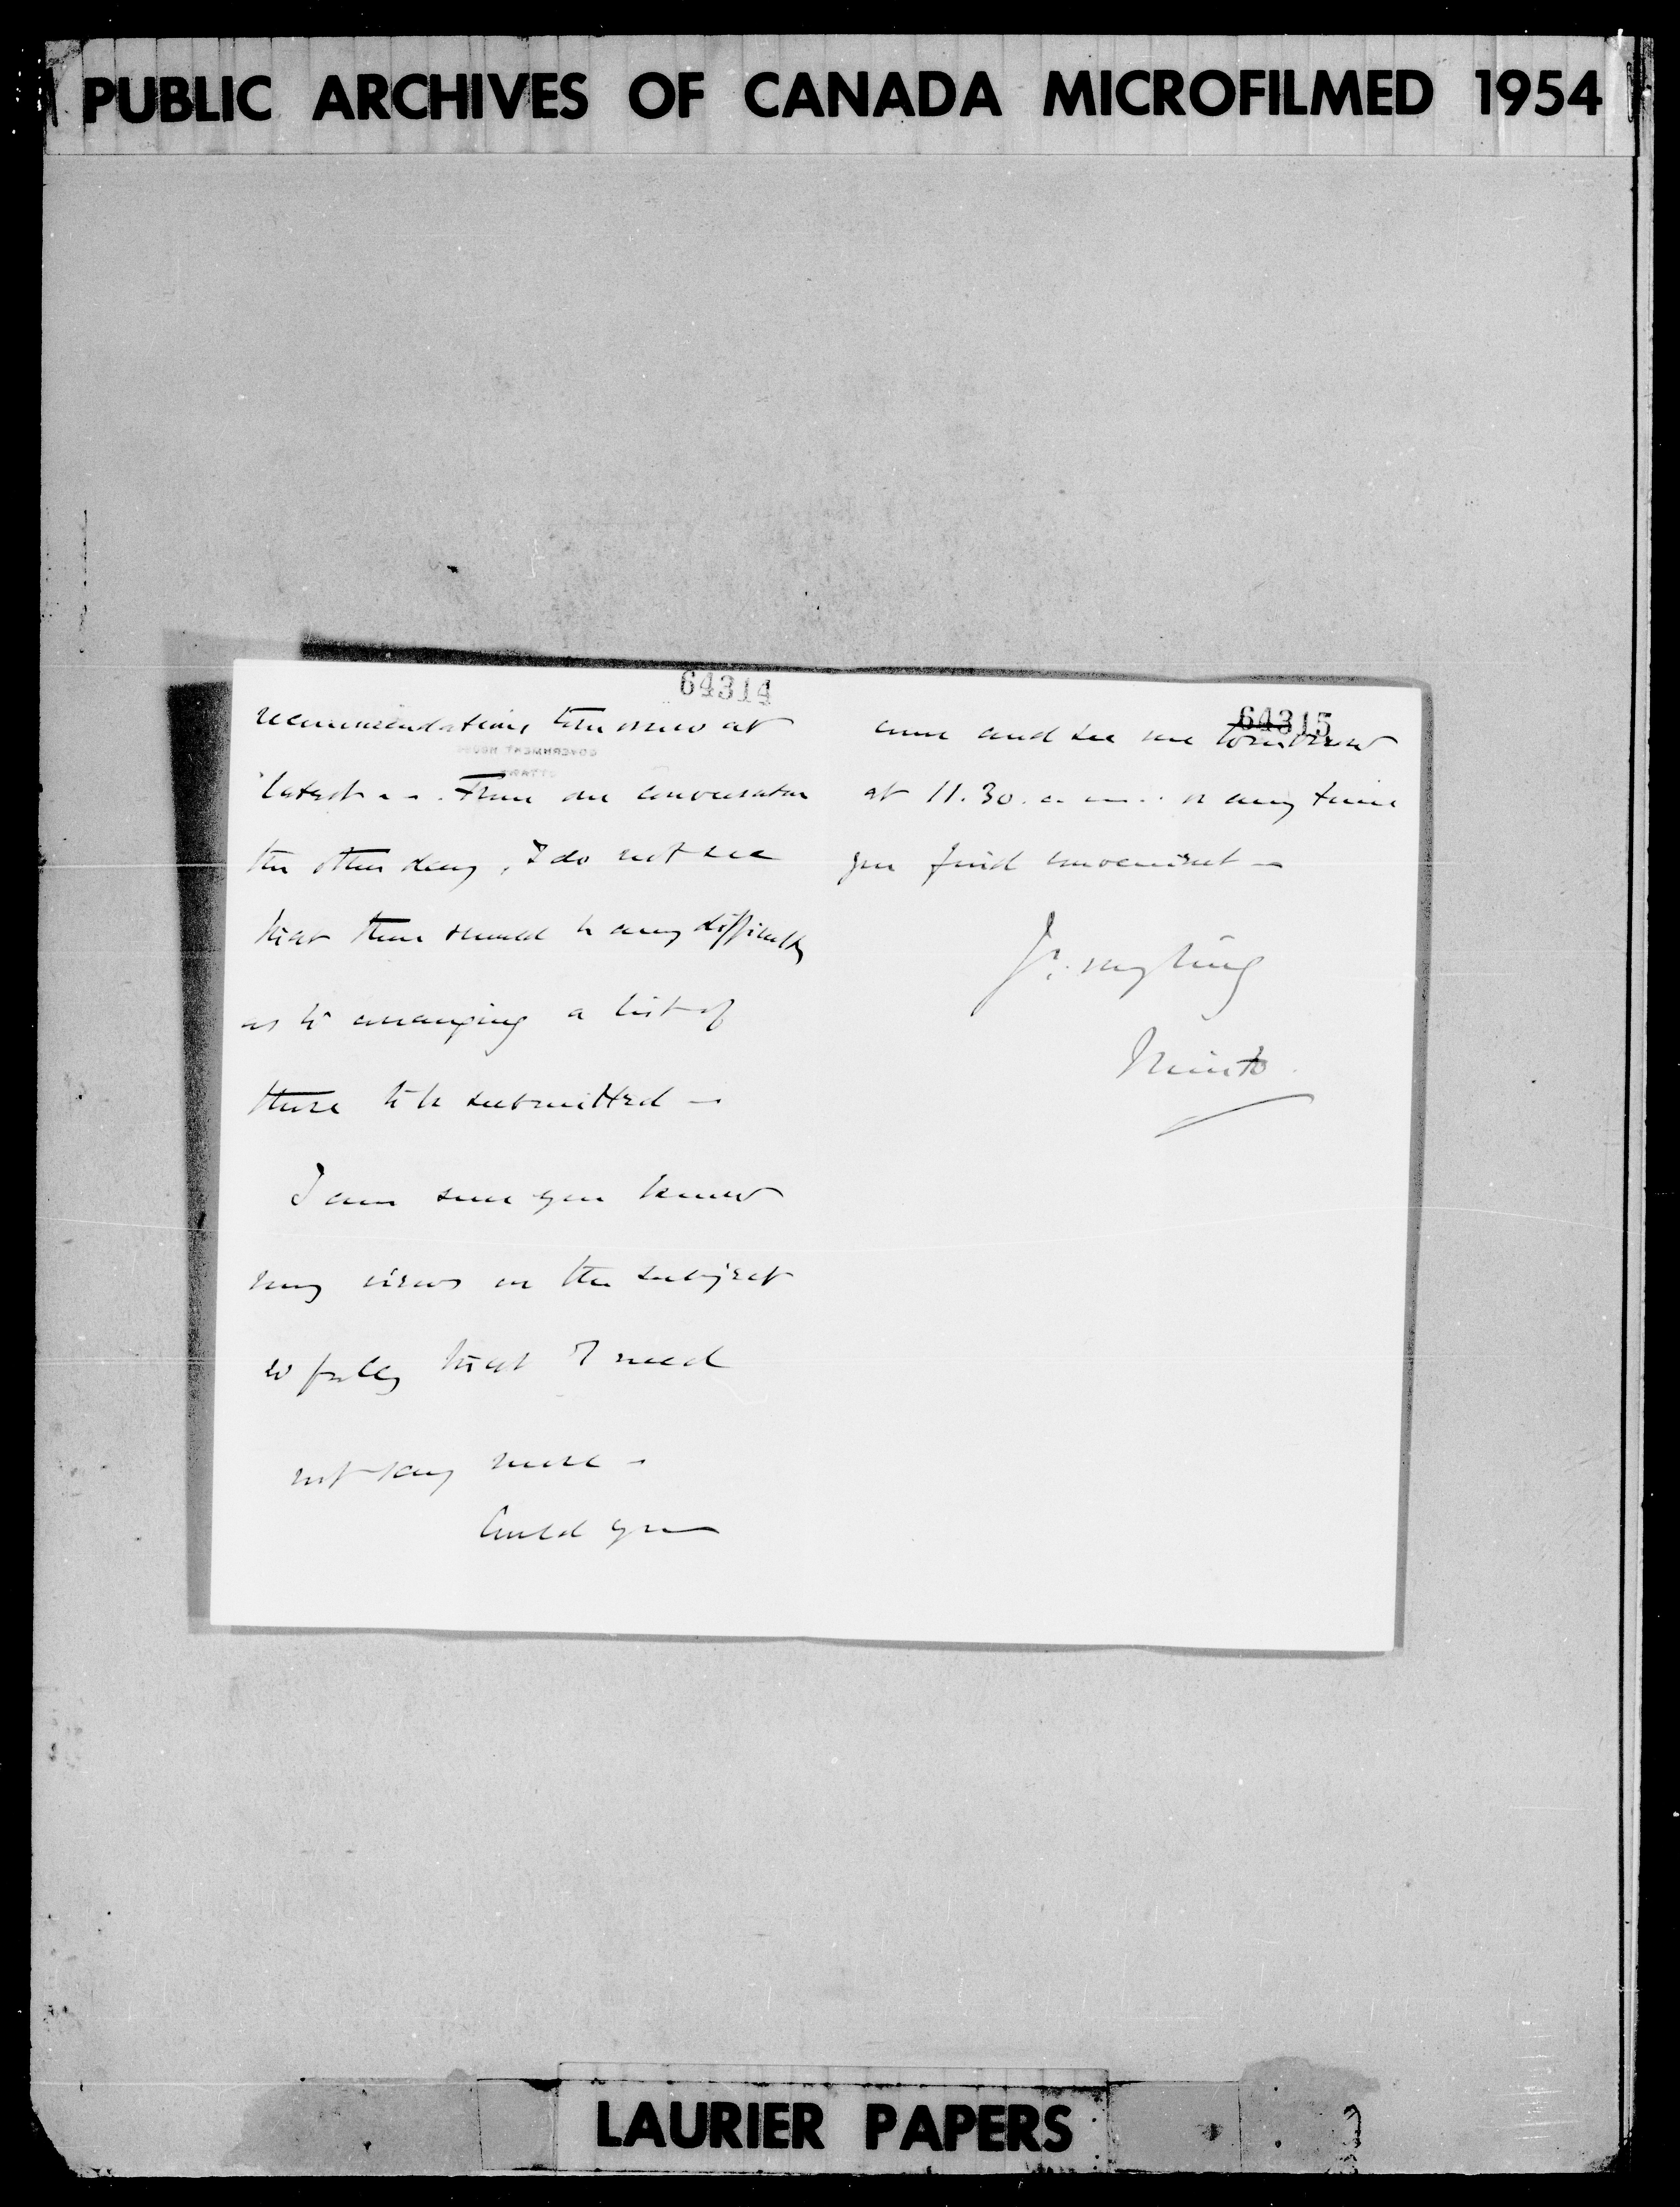 PUBLIC ARCHIVES OF CANADA MICROFILMED 1954
64314
recommendations tomorrow at
latest - - . From our conversation
the other day, I do not see
that there should be any difficulty
as to arranging a list of
those to be submitted -
I am sure you know
my views on the subject
so fully that I need
not say more -
Could you
64315
come and see me tomorrow
at 11.30. a.m. . or any time
you find convenient -
Minto
LAURIER PAPERS